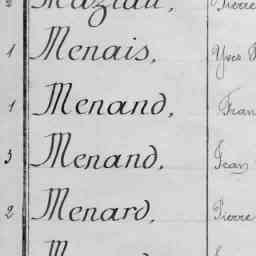 2 Maziau, Pierre
1 Menais, Yves
1 Menand, Fran
3 Menand, Jean
2 Menard, Pierre